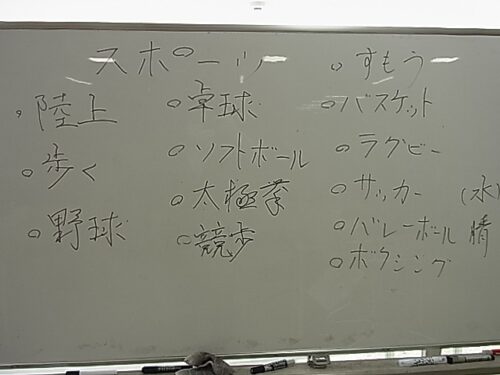 スポーツ
。陸上
。歩く
。野球
。卓球
。ソフトボール
。太極拳
。競歩
。すもう
。バスケット
。ラグビー
。サッカー
。バレーボール
。ボクシング
(水)
晴